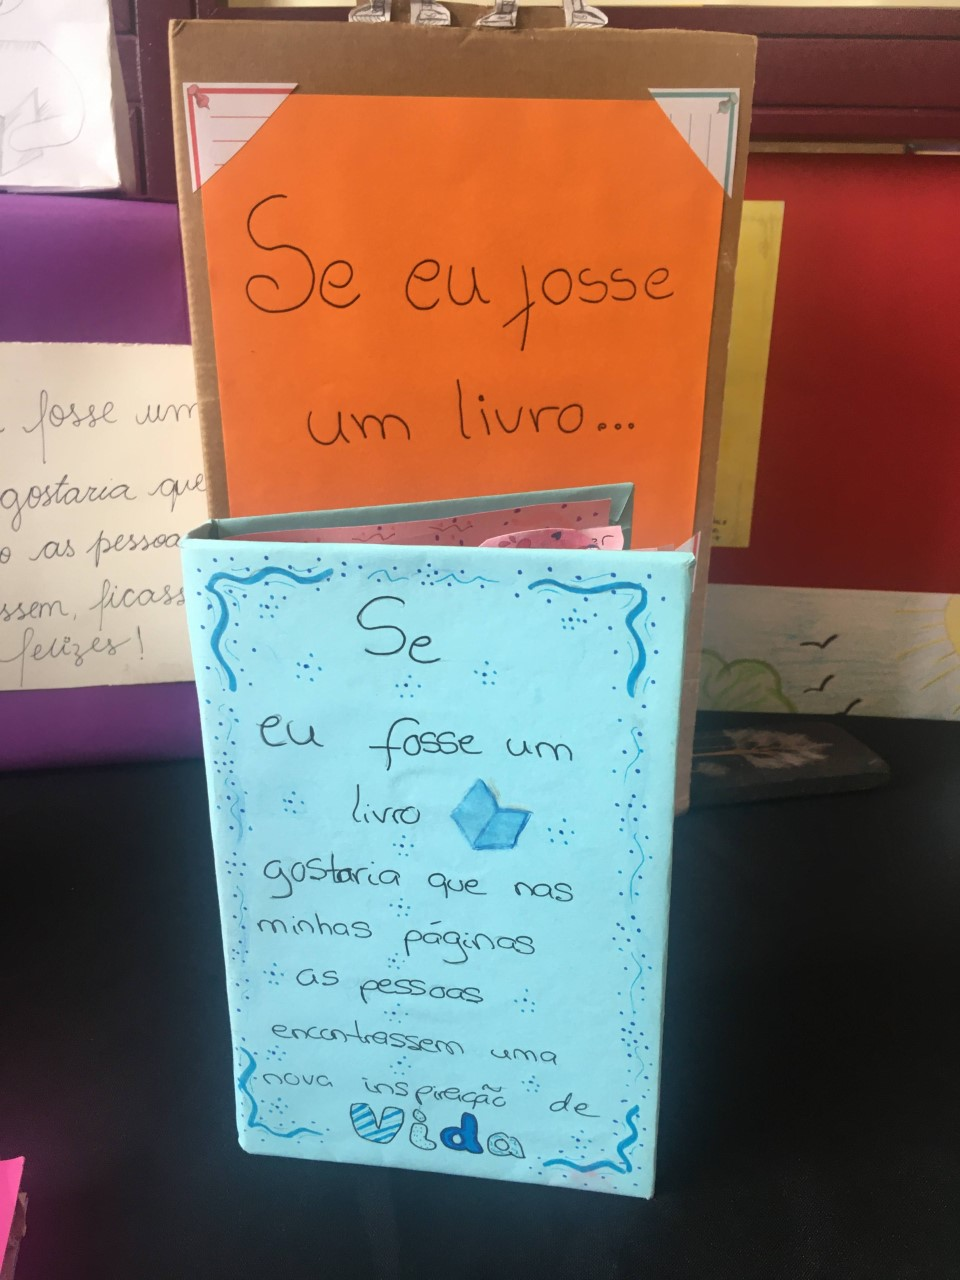 Se eu fosse
um livro...
fosse um
gostaria que
as pessoa
ssem, ficass
felizes!
Se
eu fosse um
livro
gostaria que nas
minhas páginas
as pessoas
encontrassem uma
nova inspiração de
vida